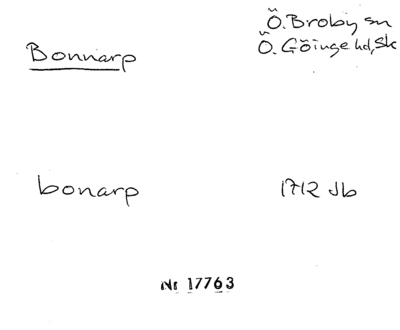 Bonnarp
Ö.Broby sn
Ö. Göinge hd, Sk
bonarp
1712 Jb
Nr 17763